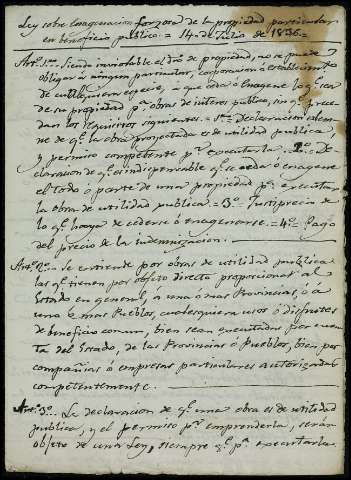 Ley sobre Enagenacion forzosa de la propiedad particular
en beneficio publico = 14 de Julio de 1836.=
Art.º 1º= Siendo inviolable el dro de propiedad, no se puede
obligar á ningun particular, corporacion ó establecimto
de cualquiera especie, á que ceda ó enagene lo q.e sea
de su propiedad p.a obras de interes publico, sin q.e prece-
dan los requisitos siguientes.= 1º= Declaracion solem-
ne de q.e la obra proyectada es de utilidad publica,
y permiso competente p.a executarla. 2º= De-
claracion de q.e es indispensable q.e se ceda ó enagene
el todo ó parte de una propiedad p.a executar
la obra de utilidad publica = 3º= Justiprecio de
lo q.e haya de cederse ó enagenarse.= 4º= Pago
del precio de la indemnizacion.
Art.º 2º= Se entiende por obras de utilidad publica
las q.e tienen por objeto directo proporcionar al
Estado en general, a una ó mas Provincias, ó á
uno ó mas Pueblos, cualesquiera usos ó disfrutes
de beneficio comun, bien sean executadas por cuen-
ta del Estado, de las Provincias ó Pueblos, bien por
compañias ó empresas particulares autorizadas
competentemente.
Art.º 3º= La declaracion de q.e una obra es de utilidad
publica, y el permiso p.a emprenderla, serán
objeto de una Ley, siempre q.e p.a executarla